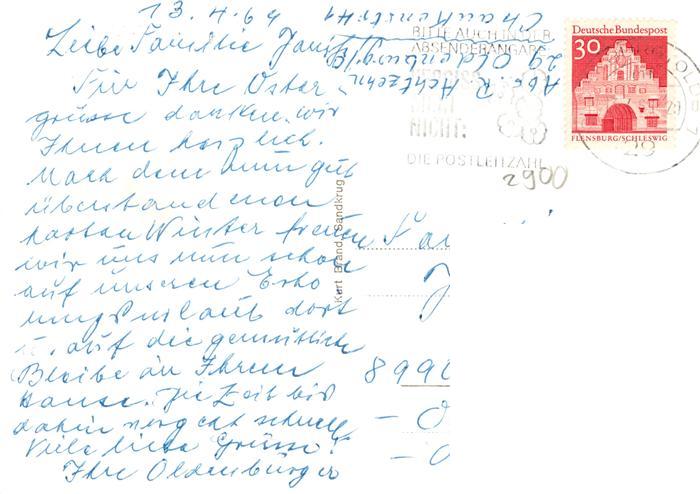 13.4.69
Liebe Familie
Für Ihre Oster-
grüsse danken wir
Ihnen herzlich.
Nach dem nun gut
überstandenen
harten Winter freuen
wir uns nun schon
auf unseren Erho
lungsurlaub dort
u. auf die gemütliche
Bleibe in Ihrem
Hause. Die Zeit bis
dahin vergeht schnell
Viele liebe Grüsse!
Ihre Oldenburger
Abs. R. Achtzehn
29 Oldenburg
BITTE AUCH IN DER
ABSENDERANGABE
VERGISS
MEIN
NICHT:
DIE POSTLEITZAHL
Deutsche Bundespost
30
FLENSBURG/SCHLESWIG
29
2900
Kurt Brand, Sandkrug
Fa
J
8990